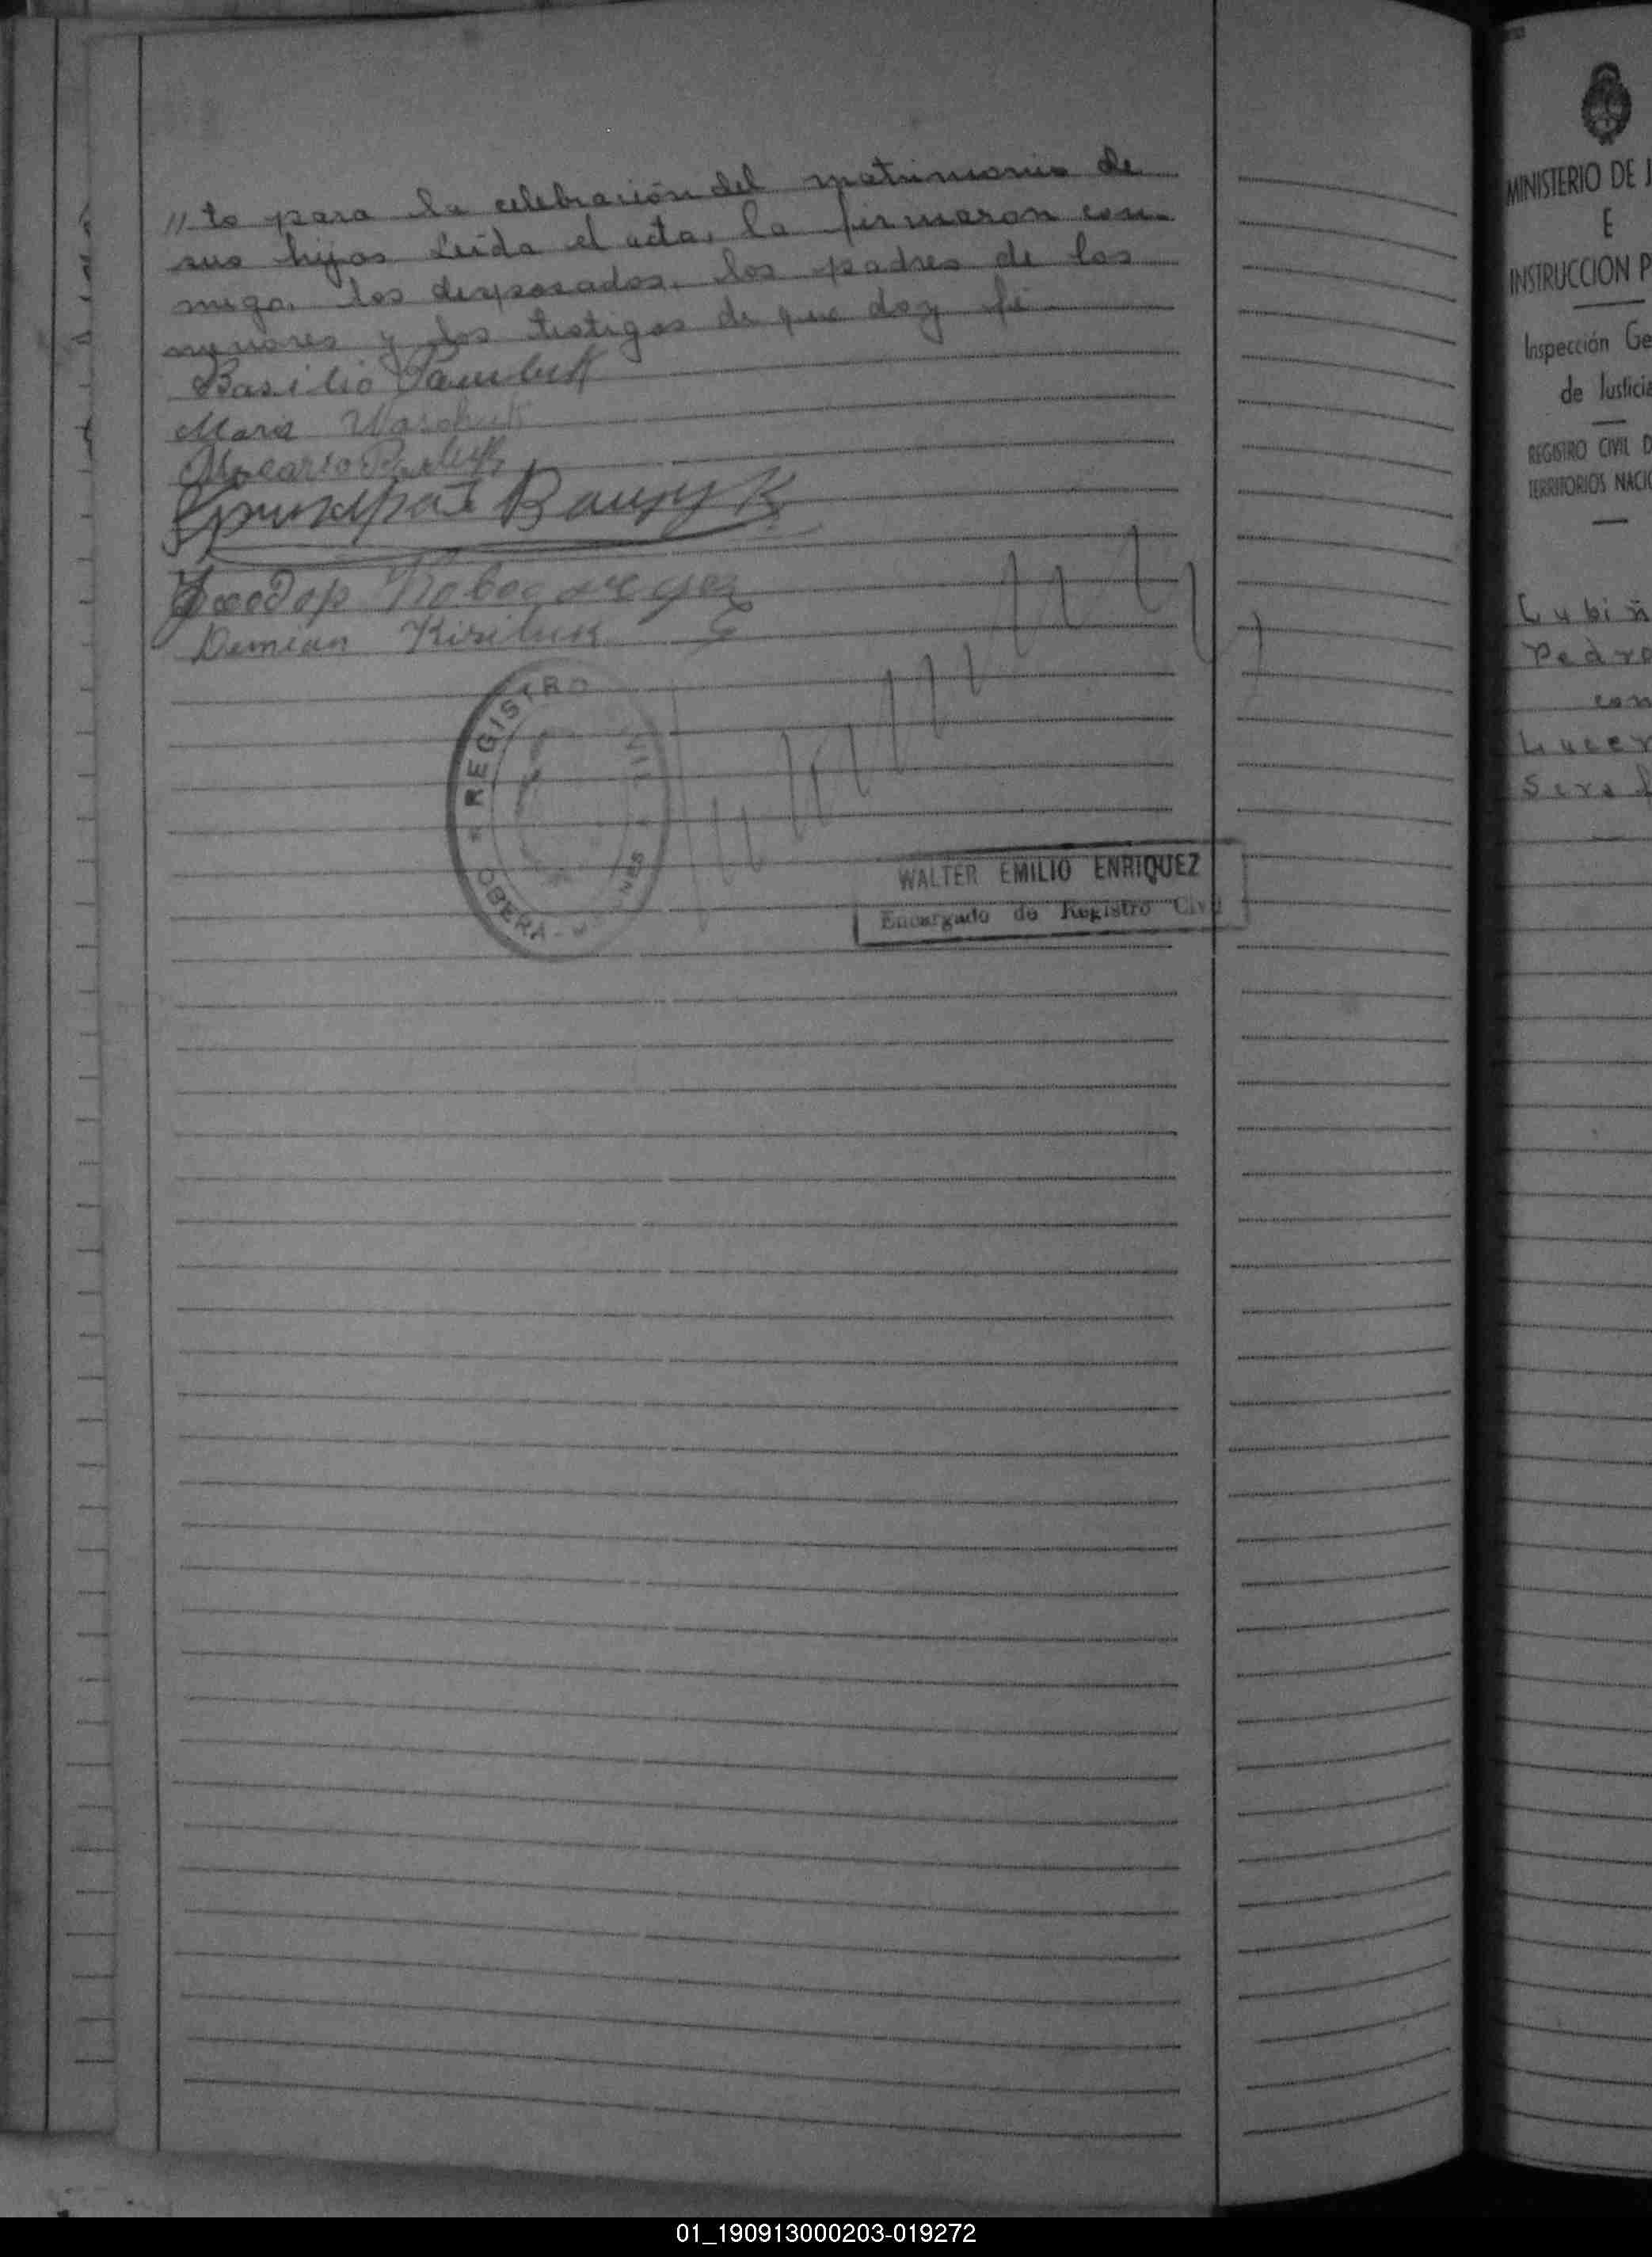 // to para la celebración del matrimonio de
sus hijos Leída el acta, la firmaron con-
migo, los desposados, los padres de los
menores y los testigos de que doy fé
Basilio
Maria Waschuk
Macario
Ващук
Demian Kiriluk
REGISTRO CIVIL
OBERA - MISIONES
WALTER EMILIO ENRIQUEZ
Encargado de Registro Civil
MINISTERIO DE J
E
INSTRUCCION P
Inspección Ge
de Justicia
REGISTRO CIVIL D
TERRITORIOS NACIO
Pedro
con
01_190913000203-019272